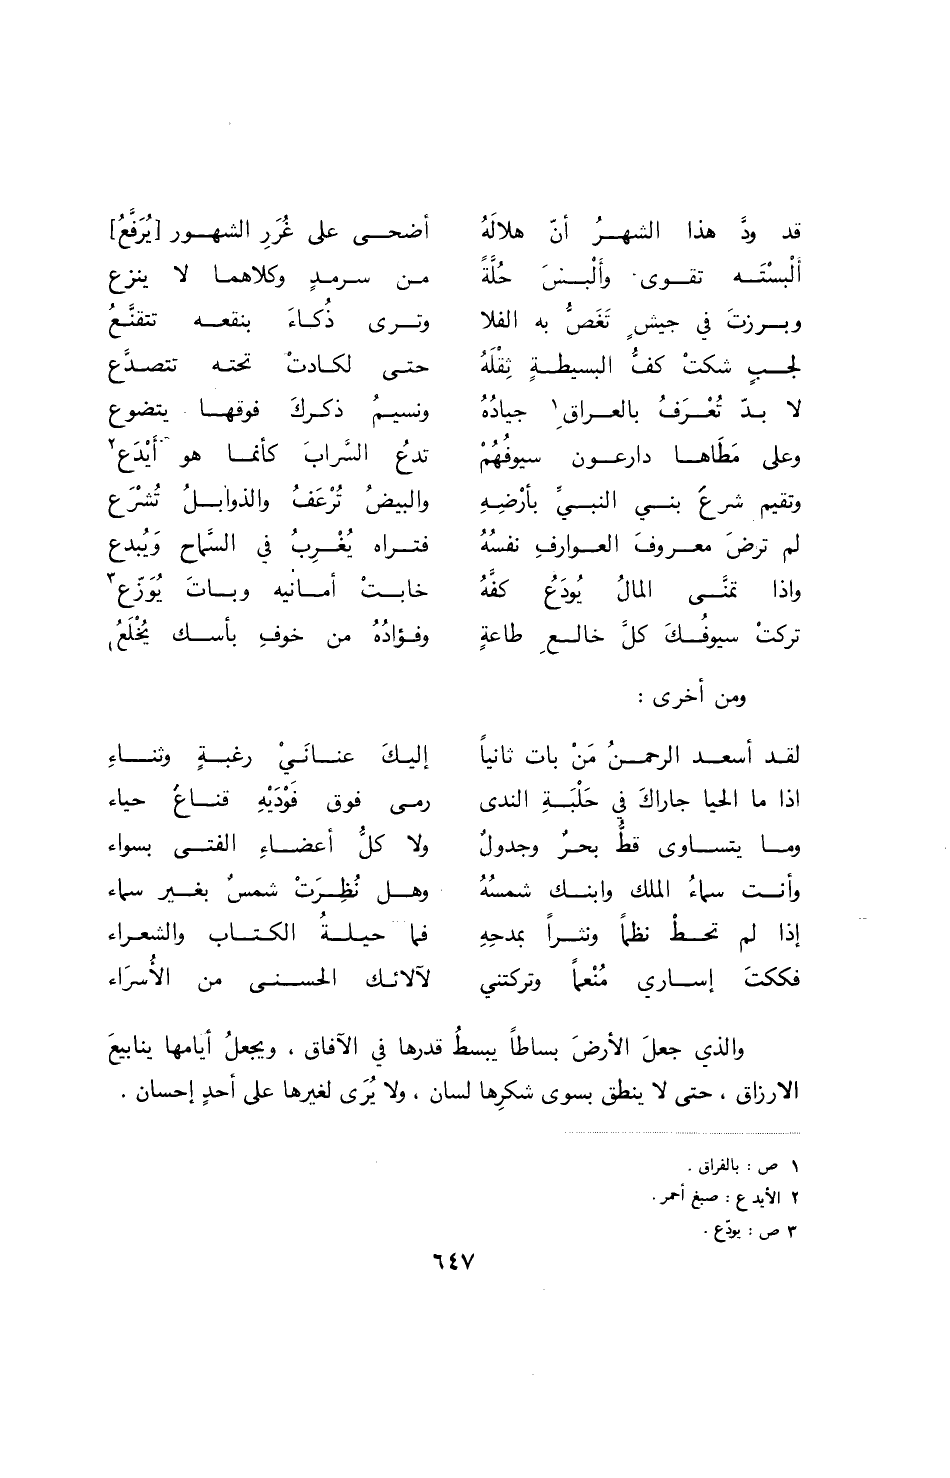 قد ودَّ هذا الشهرُ أنّ هلالَهُ أضحى على غُرَرِ الشهور [يُرَفَّعُ]
ألْبَسْتَه تقوى وألْبسَ حُلَّةً من سرمدٍ وكلاهما لا ينزع
وبرزتَ في جيشٍ تَغَصُّ به الفلا وترى ذُكاءَ بنقعه تتقنَّعُ
لجبٍ شكتْ كفُّ البسيطةِ ثِقْلَهُ حتى لكادتْ تحته تتصدَّع
لا بدّ تُعْرَفُ بالعراقِ١ جيادُهُ ونسيمُ ذكركَ فوقها يتضوع
وعلى مَطَاها دارعون سيوفُهُمْ تدعُ السَّرابَ كأنما هو أَيْدَع٢
وتقيم شرعَ بني النبيَّ بأرْضِهِ والبيضُ تُرْعَفُ والذوابلُ تُشْرَع
لم ترضَ معروفَ العوارفِ نفسُهُ فتراه يُغْرِبُ في السَّماح وَيُبدع
واذا تمنَّى المالُ يُودَعُ كفَّهُ خابتْ أمانيه وباتَ يُوَزّع٣
تركتْ سيوفُكَ كلَّ خالعِ طاعةٍ وفؤادُهُ من خوفِ بأسك يُخْلَعُ
ومن أخرى :
لقد أسعد الرحمنُ مَنْ بات ثانياً إليكَ عنانَيْ رغبةٍ وثناءِ
اذا ما الحيا جاراكَ في حَلْبَةِ الندى رمى فوق فَوْدَيْهِ قناعُ حياء
وما يتساوى قطُّ بحرٌ وجدولٌ ولا كلُّ أعضاءِ الفتى بسواء
وأنت سماءُ الملك وابنك شمسُهُ وهل نُظِرَتْ شمسٌ بغير سماء
إذا لم تحطْ نظماً ونثراً بمدحِهِ فما حيلةُ الكتاب والشعراء
فككتَ إساري مُنْعماً وتركتني لآلائك الحسنى من الأُسرَاء
والذي جعلَ الأرضَ بساطاً يبسطُ قدرها في الآفاق ، ويجعلُ أيامها ينابيعَ
الارزاق ، حتى لا ينطق بسوى شكرِها لسان ، ولا يُرَى لغيرها على أحدٍ إحسان .
١ ص : بالفراق .
٢ الأيدع : صبغ أحمر .
٣ ص : يودّع .
٦٤٧